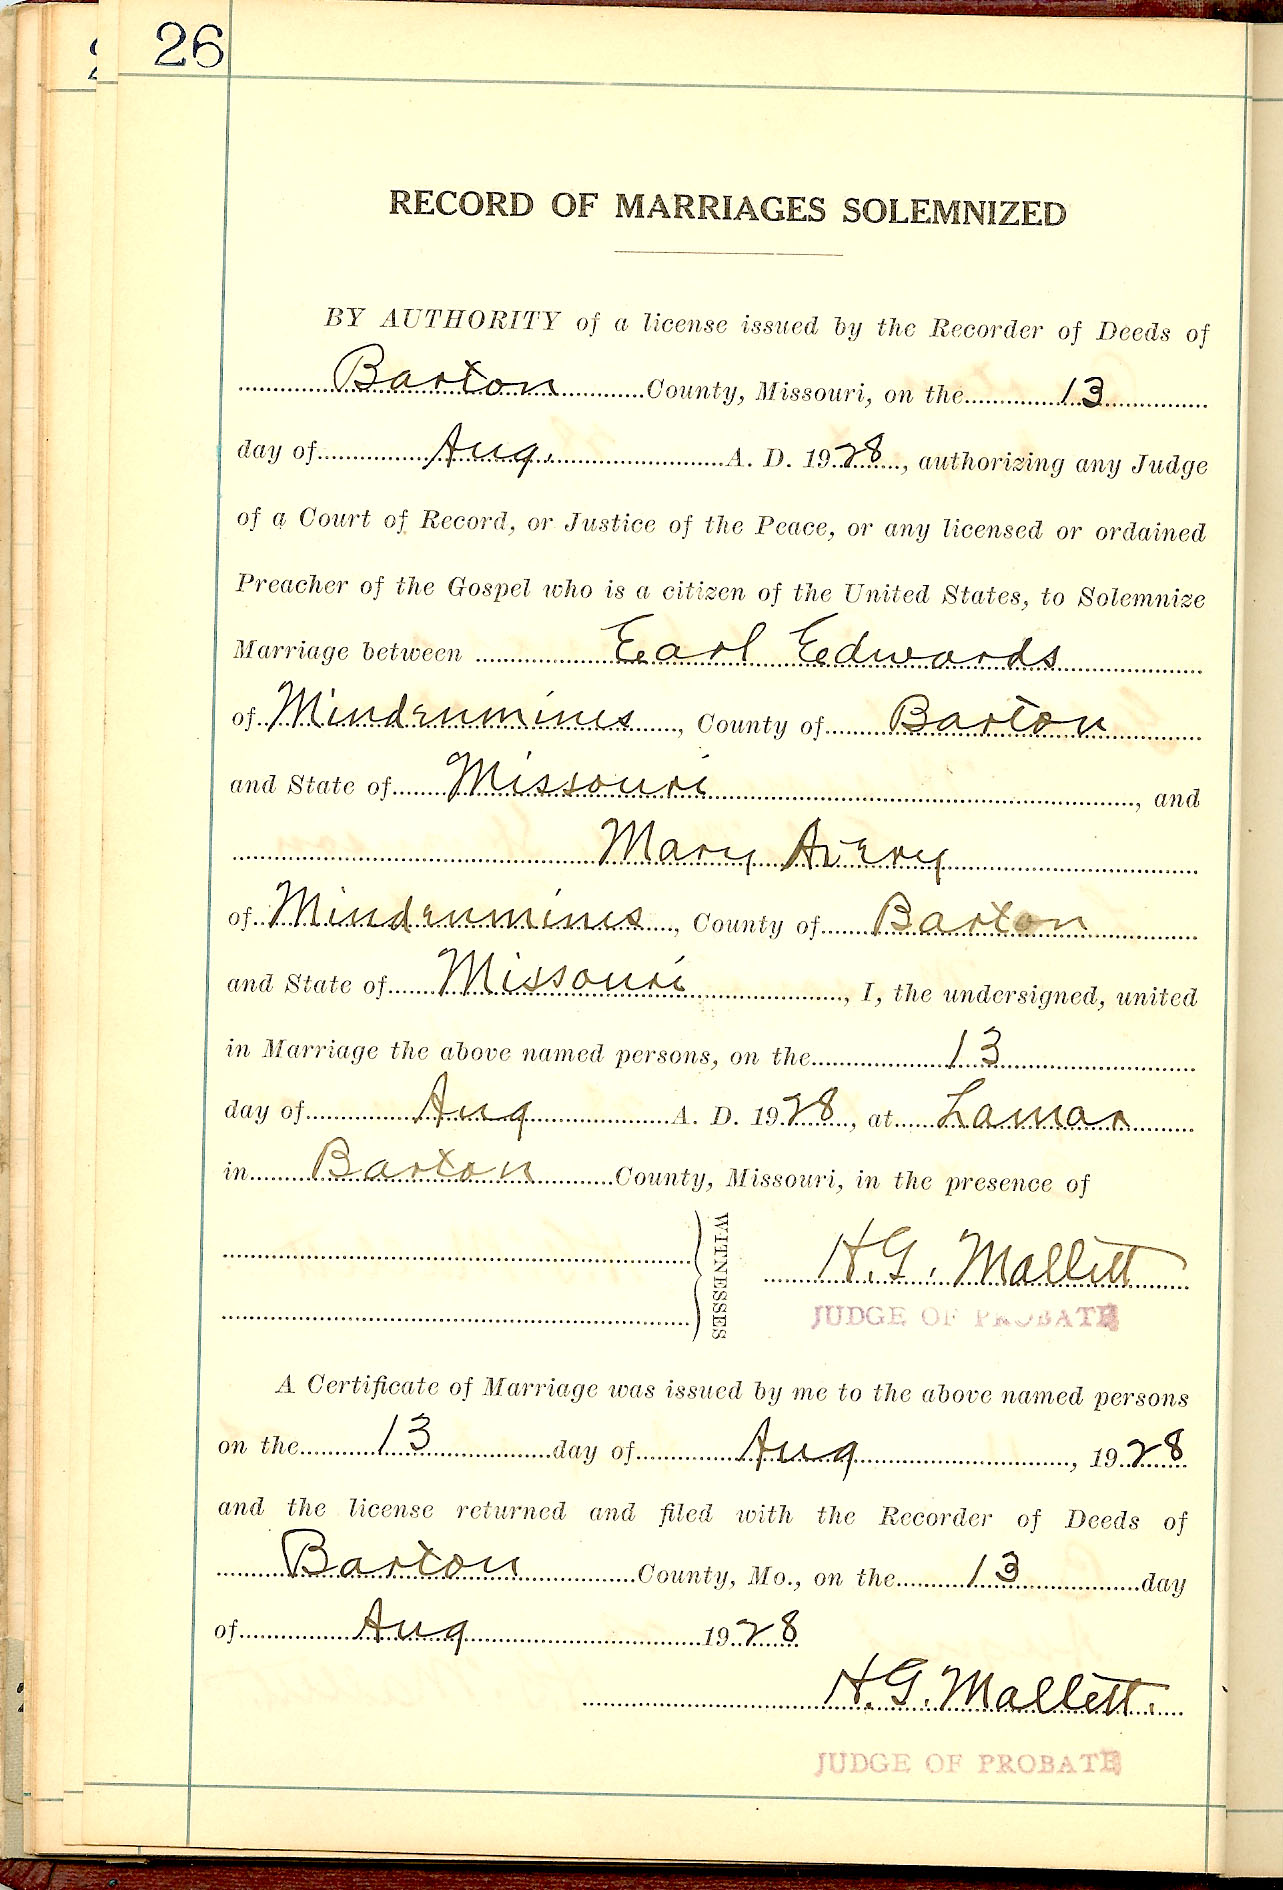 26
RECORD OF MARRIAGES SOLEMNIZED
BY AUTHORITY of a license issued by the Recorder of Deeds of
Barton County, Missouri, on the 13
day of Aug. A. D. 1928, authorizing any Judge
of a Court of Record, or Justice of the Peace, or any licensed or ordained
Preacher of the Gospel who is a citizen of the United States, to Solemnize
Marriage between Earl Edwards
of Mindenmines, County of Barton
and State of Missouri, and
Mary Avery
of Mindenmines, County of Barton
and State of Missouri, I, the undersigned, united
in Marriage the above named persons, on the 13
day of Aug A. D. 1928, at Lamar
in Barton County, Missouri, in the presence of
WITNESSES
H.G. Mallett
JUDGE OF PROBATE
A Certificate of Marriage was issued by me to the above named persons
on the 13 day of Aug, 1928
and the license returned and filed with the Recorder of Deeds of
Barton County, Mo., on the 13 day
of Aug 1928
H.G. Mallett.
JUDGE OF PROBATE